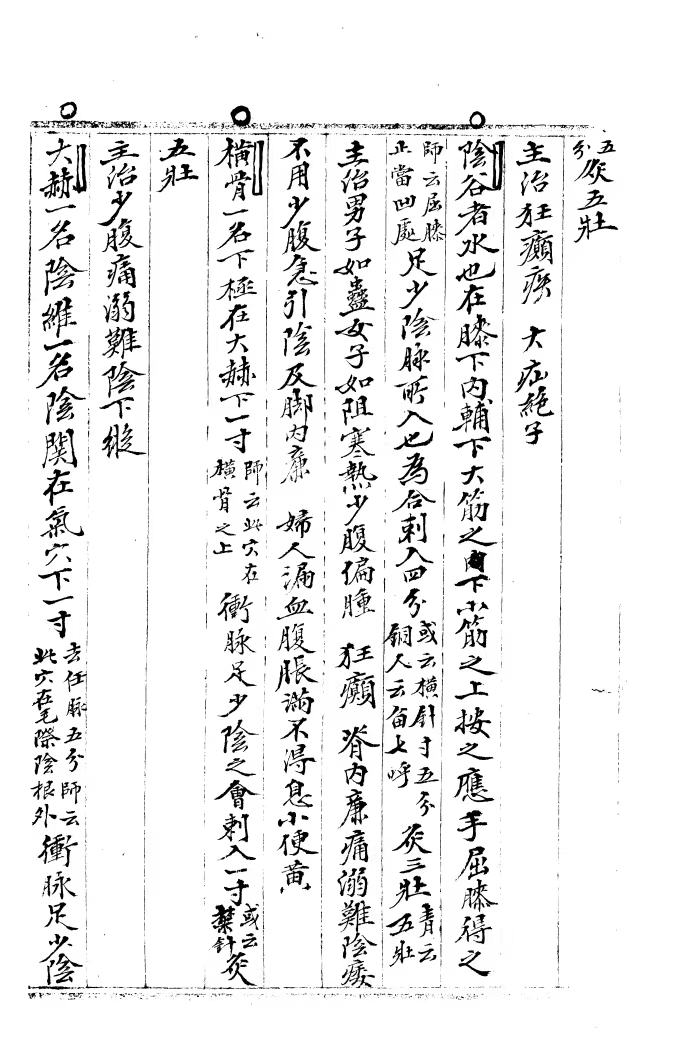 五分灸五壯
主治狂癲疾 大疝絕子
陰谷者水也在膝下內輔下大筋之下小筋之上按之應手屈膝得之
師云屈膝正當凹處足少陰脉所入也為合刺入四分或云橫針寸五分銅人云留七呼灸三壯青云五壯
主治男子如蠱女子如阻寒熱少腹偏腫 狂癲 脊內廉痛溺難陰痿
不用少腹急引陰及脚內廉 婦人漏血腹脹滿不得息小便黃
橫骨一名下極在大赫下一寸師云此穴在橫骨之上衝脉足少陰之會刺入一寸或云禁針灸
五壯
主治少腹痛溺難陰下縱
大赫一名陰維一名陰関在氣穴下一寸去任脉五分師云此穴在毛際陰根外衝脉足少陰